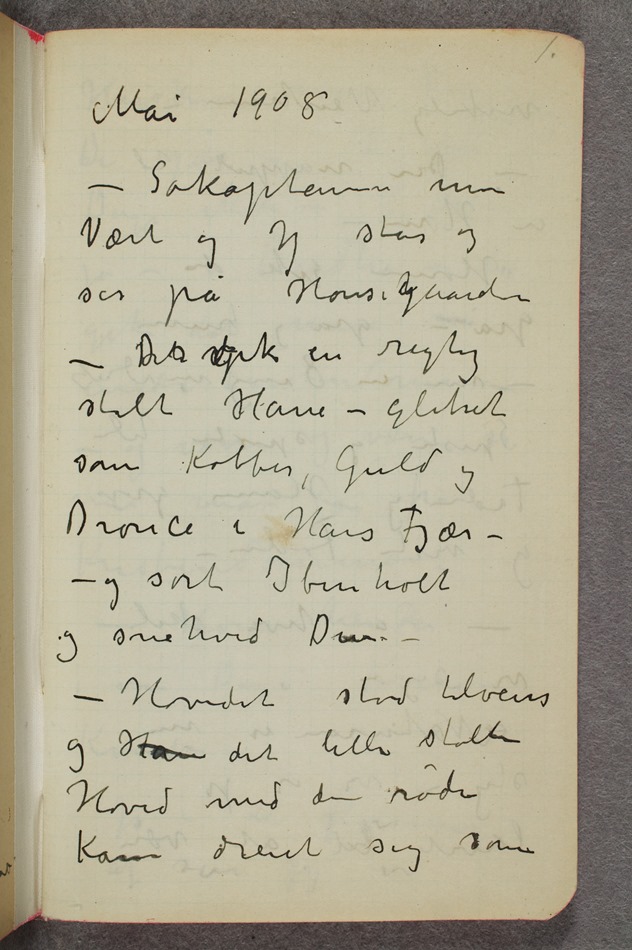 1.
Mai 1908
— Søkaptainen min
Vært og Jg står og
ser på Hønsegaarden
— Det en rigtig
stolt Hane – glitret
som Kobber, Guld og
Bronce i Hans Fjær –
– og sort Ibenholt
og snehvid Dun –
— Hovedet stod tilveirs
og Han det lille stolte
Hoved med den røde
Kam dreiet sig som